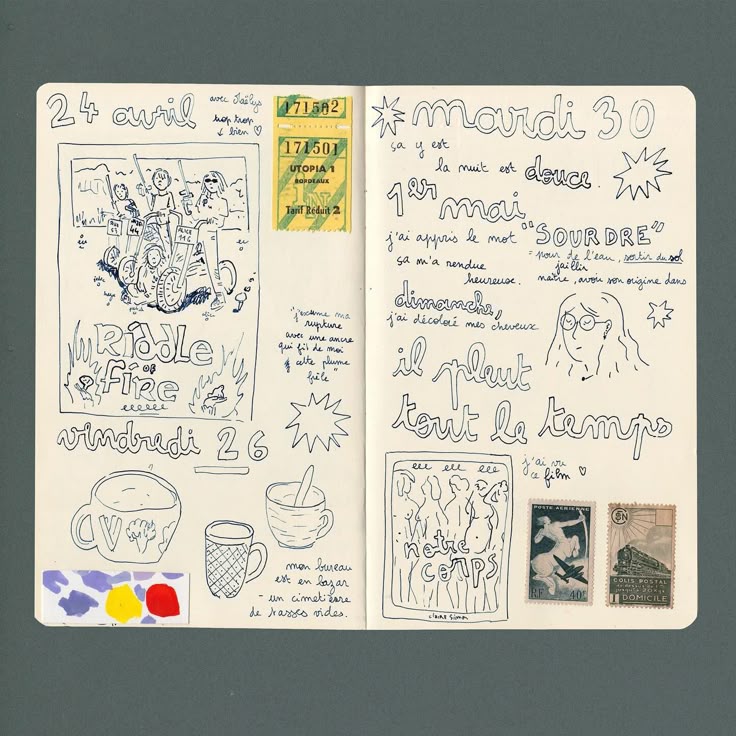 24 avril
avec Maëlys
trop trop
↓ bien ♡
171502
171501
UTOPIA 1
BORDEAUX
Tarif Réduit 2
ALICE
RIDDLE
OF
FIRE
"j'exsume ma
rupture
avec une ancre
qui fit de moi
cette plume
frêle"
vendredi 26
mon bureau
est en bazar
- un cimetière
de tasses vides.
mardi 30
ça y est
la nuit est douce.
1er mai
j'ai appris le mot "SOURDRE"
= pour de l'eau, sortir du sol
jaillir
ça m'a rendue
heureuse.
naître, avoir son origine dans
dimanche,
j'ai décoloré mes cheveux
il pleut
tout le temps
j'ai vu
ce film ♡
notre
corps
CLAIRE SIMON
POSTE AERIENNE
RF 40F
COLIS POSTAL
1 DOMICILE